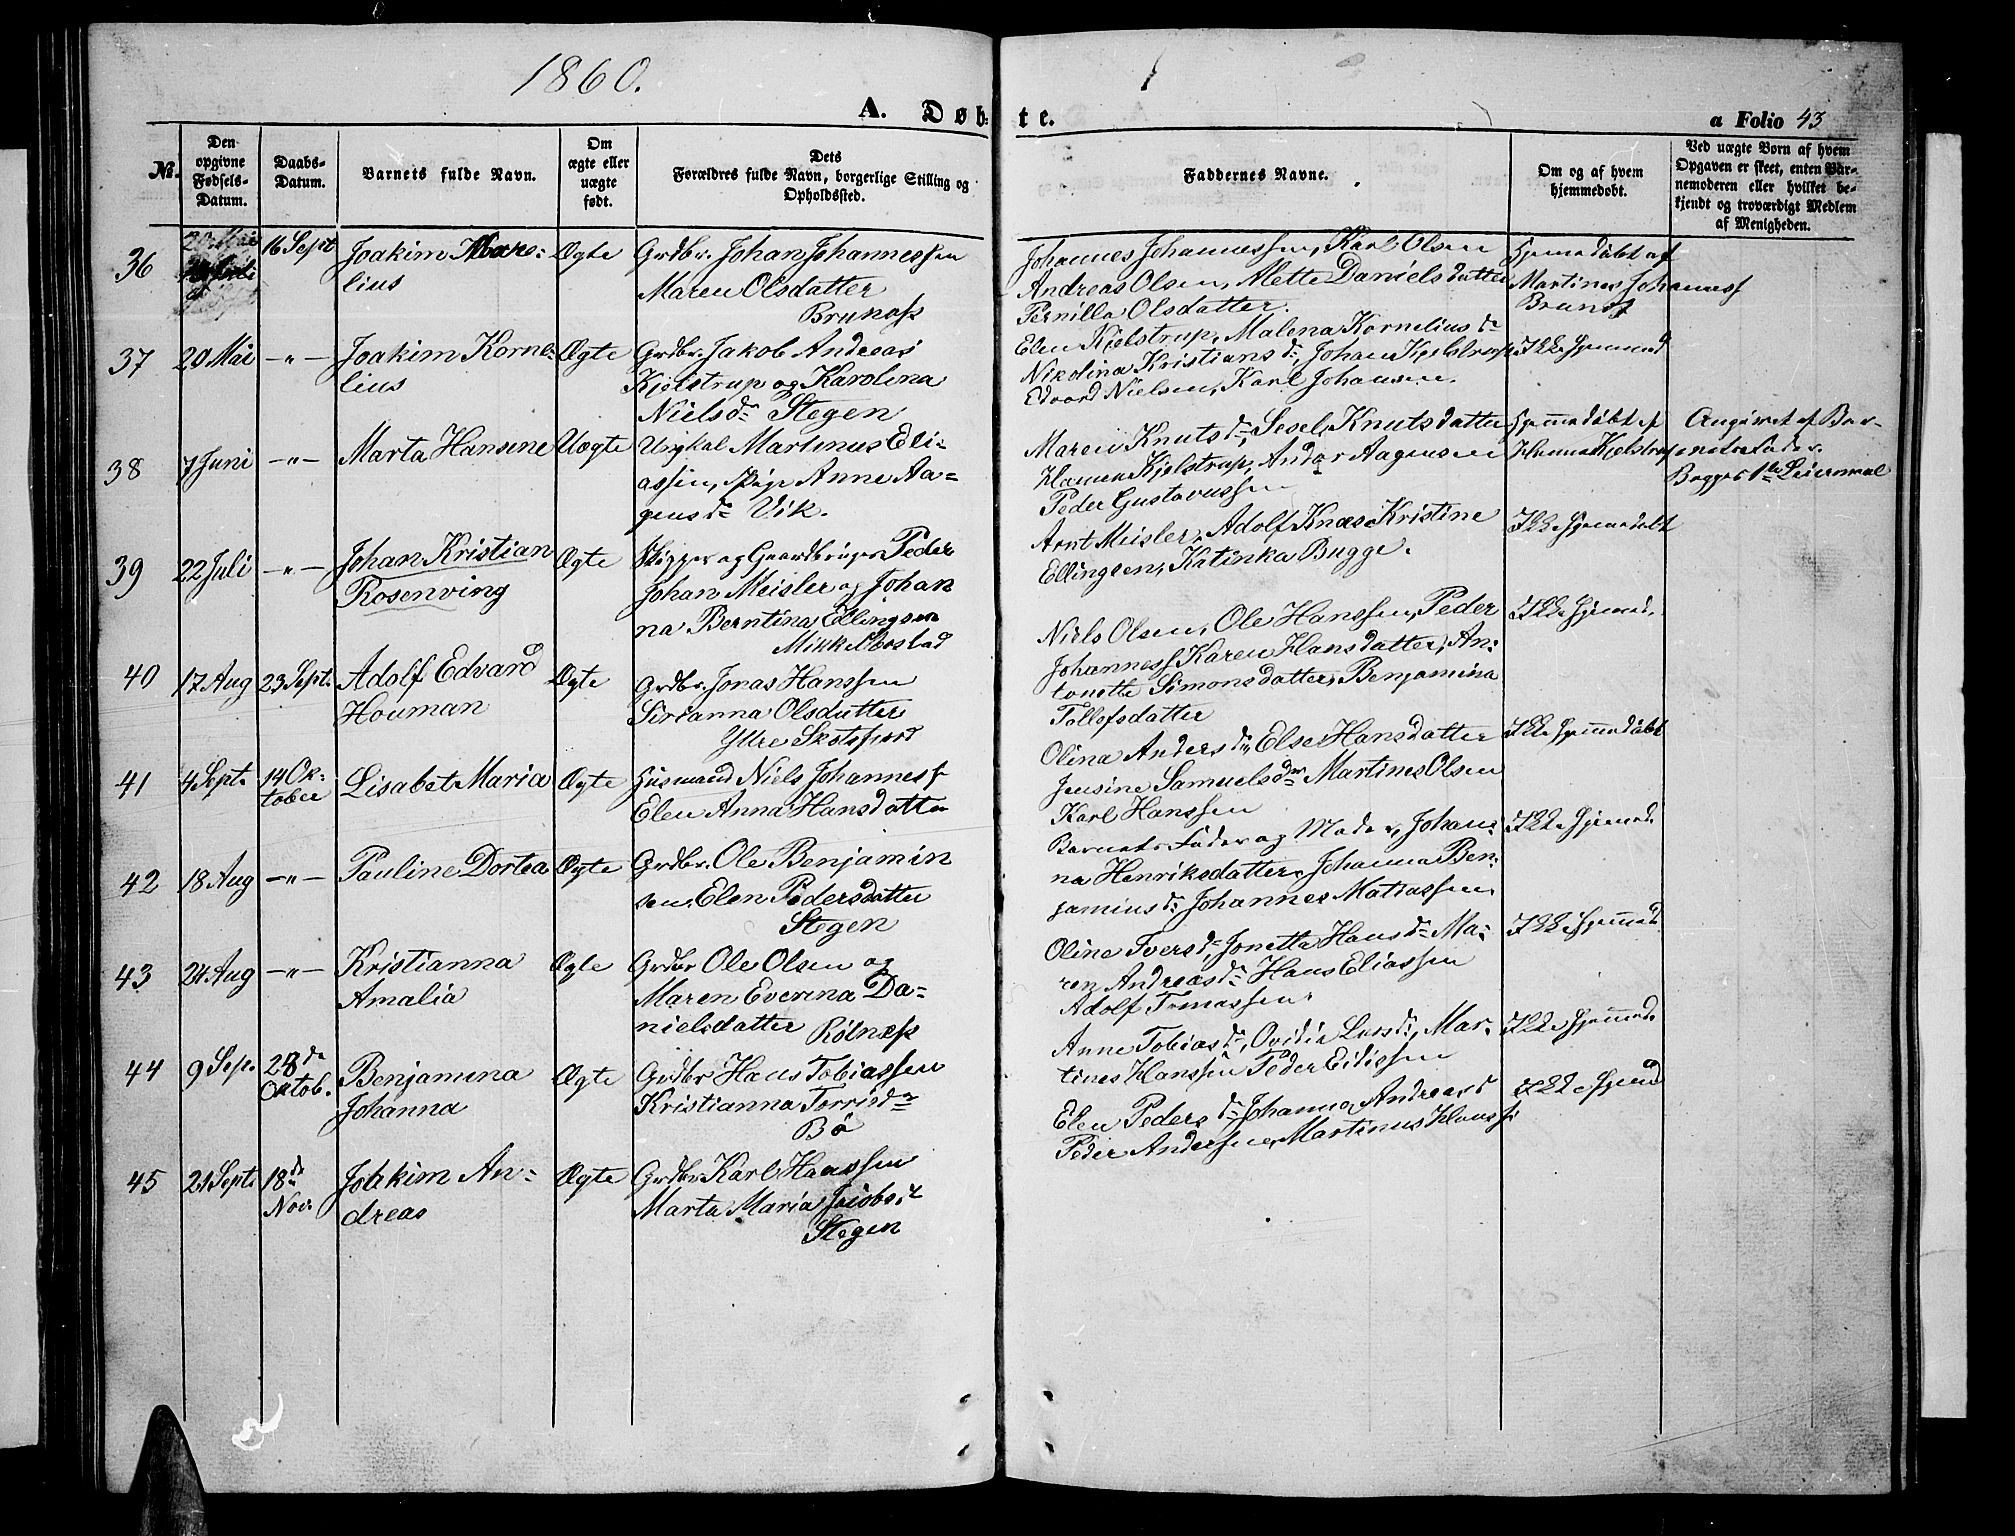 1860.
A. Døb-
te.
a Folio 43
№.
Den
opgivne
Fødsels-
Datum.
Daabs-
Datum.
Barnets fulde Navn.
Om
ægte eller
uægte
født.
Dets
Forældres fulde Navn, borgerlige Stilling og
Opholdssted.
Faddernes Navne.
Om og af hvem
hjemmedøbt.
Ved uægte Børn af hvem
Opgaven er skeet, enten Bar-
nemoderen eller hvilket be-
kjendt og troværdigt Medlem
af Menigheden.
36
16 Sept
Joakim
lius
Ægte
Grdbr. Johan Johannessen
Maren Olsdatter
Brunøss
Johannes Johannessen, Karl Olsen
Andreas Olsen, Mette Danielsdatter
Pernilla Olsdatter.
Hjemmedøbt af
Martines Johannesf
37
20 Mai
-"-
Joakim Korne-
lius
Ægte
Grdbr. Jakob Andreas
Kjelstrup og Karolina
Nielsd. Stegen
Elen Kjelstrup, Malena Kornelius d.
Nikolina Kristians d., Johan Kjelstrup
Edvard Nielsen, Karl Johansen.
Ikke Hjemmed
38
7 Juni
-"-
Marta Hansine
Uægte
Ungkal Martinus Eli-
assen, Pige Anne Aa-
gensd. Vik.
Maren Knutsd., Sesel Knutsdatter
Hanna Kjelstrup, Andor Aagensen
Peder Gustavussen
Hjemmedøbt af
Hanna Kjelstrup
Angivet af Bar-
nets Fader.
Begges 1ste Leiermaal
39
22 Juli
-"-
Johan Kristian
Rosenving
Ægte
Skipper og Gaardbruger Peder
Johan Meisler og Johan
na Berntina Ellingsen
Mikkelborstad
Arnt Meisler, Adolf Knæs, Kristine
Ellingsen, Katinka Bugge.
Ikke Hjemmedøbt
40
17 Aug
23 Sept.
Adolf Edvard
Houman
Ægte
Grdbr. Jonas Hanssen
Sirianna Olsdatter
Ytre Skotsfjord
Niels Olsen, Ole Hanssen, Peder
Johannesf Karen Hansdatter, An-
tonette Simonsdatter, Benjamina
Tollefsdatter
Ikke Hjemmed.
41
4 Sept.
14 Ok-
tober
Lisabet Maria
Ægte
Husmand Niels Johannesf
Elen Anna Hansdatter
Olina Anders d., Else Hansdatter
Jensine Samuelsd. Martines Olsen
Karl Hanssen
Ikke Hjemmedøbt
42
18 Aug
-"-
Pauline Dortea
Ægte
Grdbr. Ole Benjamin
sen, Elen Pedersdatter
Stegen
Barnets Fader og Moder, Johan-
na Henriksdatter, Johanna Ben-
jamins d. Johannes Matiassen
Ikke Hjemmed.
43
24 Aug
-"-
Kristianna
Amalia
Ægte
Grdbr Ole Olsen og
Maren Everina Da-
nielsdatter Rölnæss
Oline Ivers d. Jonetta Hans d. Ma-
ren Andreas d. Hans Eliassen
Adolf Tomassen.
Ikke Hjemmed.
44
9 Sep.
28de
Oktob.
Benjamina
Johanna
Ægte
Grdbr Hans Tobiassen
Kristianna Torrisd.
Bø
Anne Tobias d., Ovidia Lars d., Mar-
tines Hanssen Peder Eidissen
Ikke Hjemmed.
45
21 Sept.
18de
Nov.
Joakim An-
dreas
Ægte
Grdbr. Karl Hanssen
Marta Maria Jacobs.d
Stegen
Elen Peders d. Johanna Andreas d
Peder Andersen, Martinus Hanssf
Ikke Hjemmd